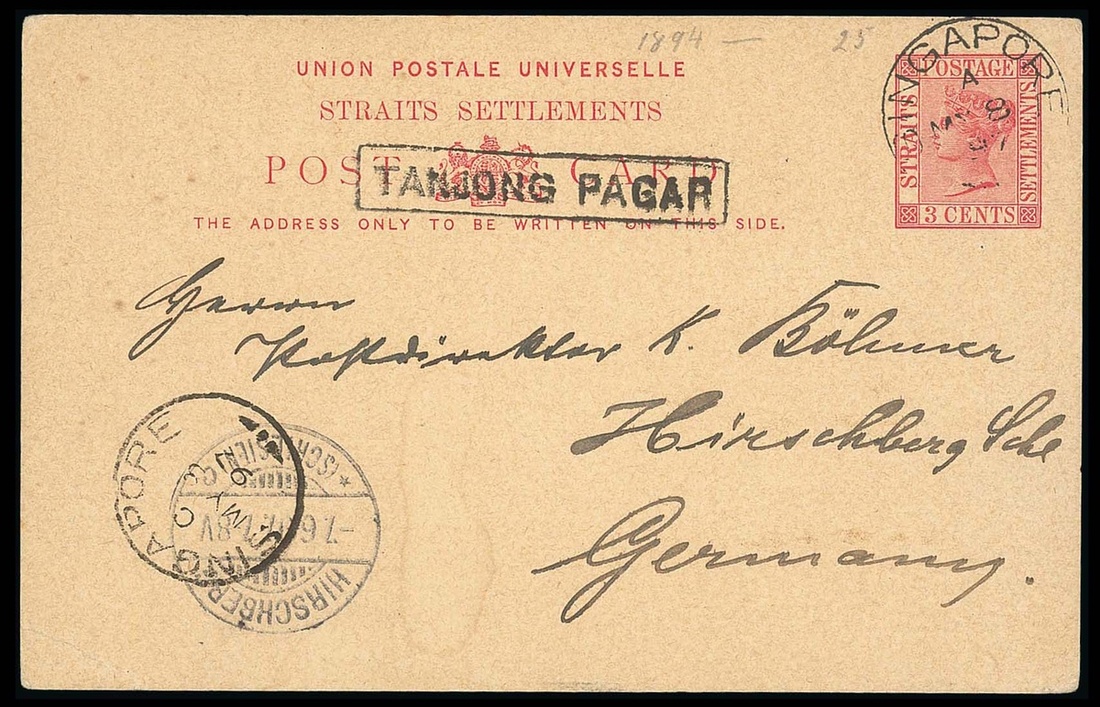 1894 — 25
UNION POSTALE UNIVERSELLE
STRAITS SETTLEMENTS
POST CARD
THE ADDRESS ONLY TO BE WRITTEN ON THIS SIDE.
TANJONG PAGAR
SINGAPORE
A
MY 8
POSTAGE
STRAITS
SETTLEMENTS
3 CENTS
Herrn
Postdirektor K. Böhmer
Hirschberg Schl
Germany.
SINGAPORE
C
MY
HIRSCHBERG